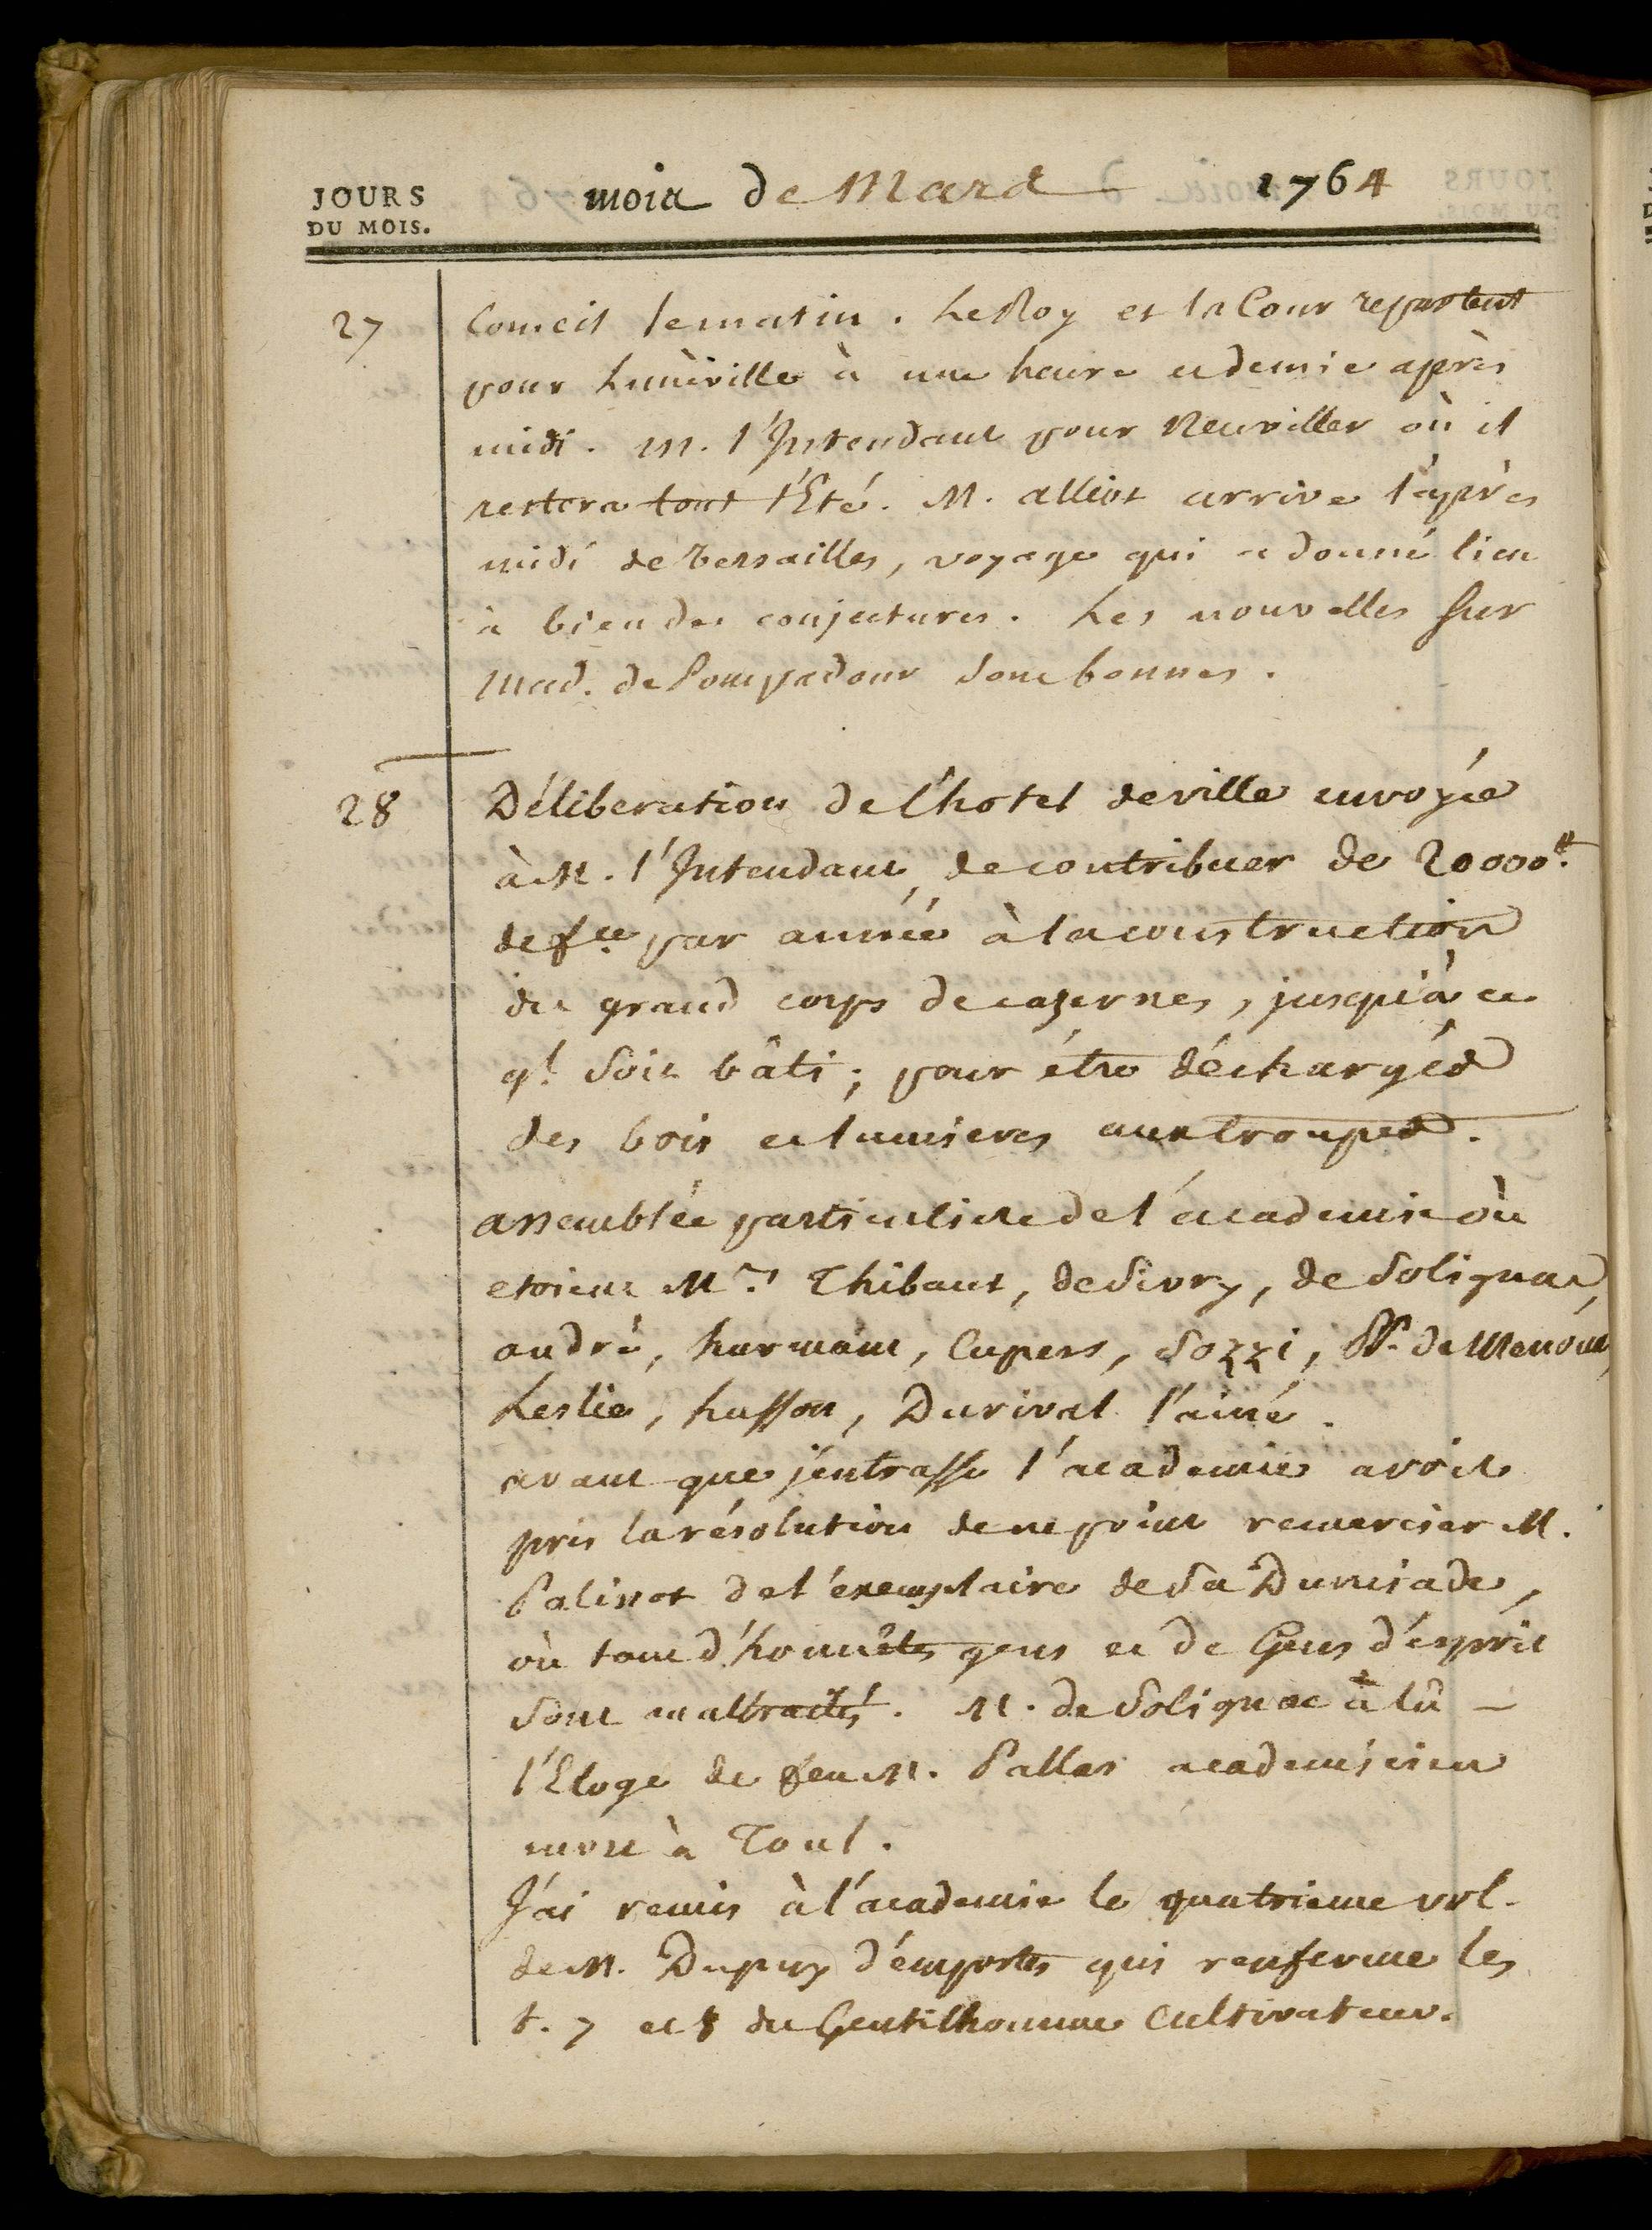 JOURS
DU MOIS.
mois de Mars 1764
27
Conseil le matin. Le Roy et la Cour repartent
pour Lunéville à une heure et demie après
midi. M. l'Intendant pour Neuviller où il
restera tout l'Eté. M. alliot arrive l'après
midi de Versailles, voyage qui a donné lieu
à bien des conjectures. Les nouvelles sur
Mad. de Pompadour sont bonnes.
28
Déliberation de l'hotel de ville envoyée
à M. l'Intendant, de contribuer de 20000#.
de fce. par année à la construction
du grand corps de cazernes, jusqu'à ce
ql. soit bâti; pour étre déchargés
des bois et lumieres aux troupes.
assemblée particuliere de l'academie où
etoient Mrs. Thibaut, de Sivry, de Solignac,
andré, harmant, Cupers, Sozzi, PP. de Menoux,
Leslie, husson, Durival l'ainé.
avant que j'entrasse l'academie avoit
pris la résolution de ne point remercier M.
Palissot de l'exemplaire de sa Dunciade,
où tant d'honnêtes gens et de Gens d'esprit
sont maltraités. M. de Solignac à lû
l'Eloge de feu M. Pallas academicien
mort à Toul.
J'ai remis à l'academie le quatrieme vol.
de M. Dupuy d'emportes qui renferme les
t. 7 et 8 du Gentilhomme Cultivateur.